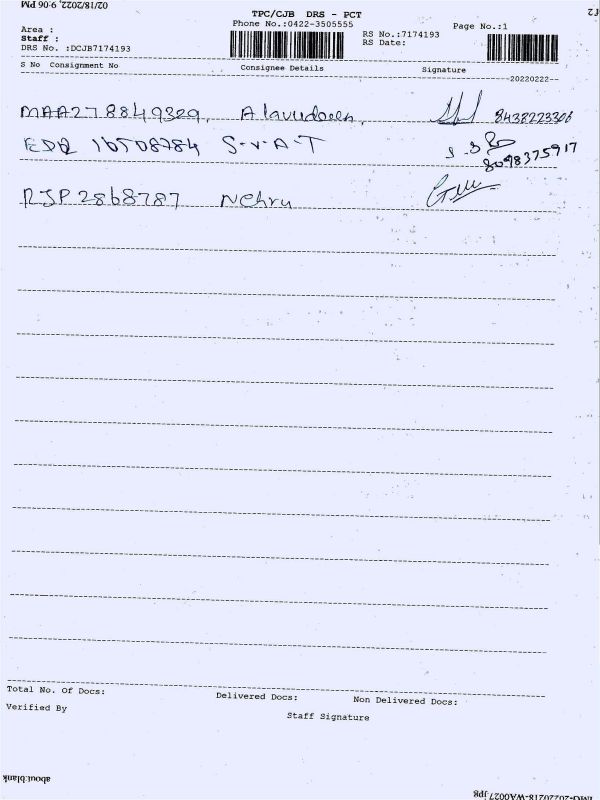 02/18/2022, 9:06 PM
TPC/CJB DRS - PCT
Phone No.:0422-3505555
Page No.:1
Area :
RS No.:7174193
Staff :
RS Date:
DRS No. :DCJB7174193
S No Consignment No Consignee Details Signature
--20220222--
MAA278849329, Alavudeen, 8438223306
EDQ 16508784 S-V-A-T
8098375917
RJP2868787 Nehru
Total No. Of Docs: Delivered Docs: Non Delivered Docs:
Verified By Staff Signature
about:blank
IMG-20220218-WA0027.jpg